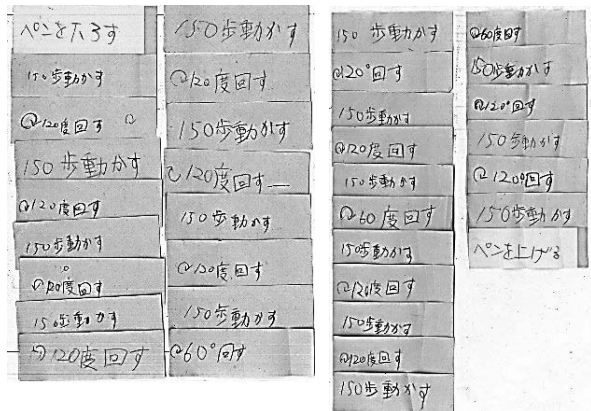 ペンを下ろす
150歩動かす
↻120度回す ↻
150歩動かす
↻120度回す
150歩動かす
↻120度回す
150歩動かす
↻120度回す
150歩動かす
↻120度回す
150歩動かす
↻120度回す
150歩動かす
↻120度回す
150歩動かす
↻60°回す
150歩動かす
↻120°回す
150歩動かす
↻120度回す
150歩動かす
↻60度回す
150歩動かす
↻120度回す
150歩動かす
↻120度回す
150歩動かす
↻60度回す
150歩動かす
↻120°回す
150歩動かす
↻120°回す
150歩動かす
ペンを上げる